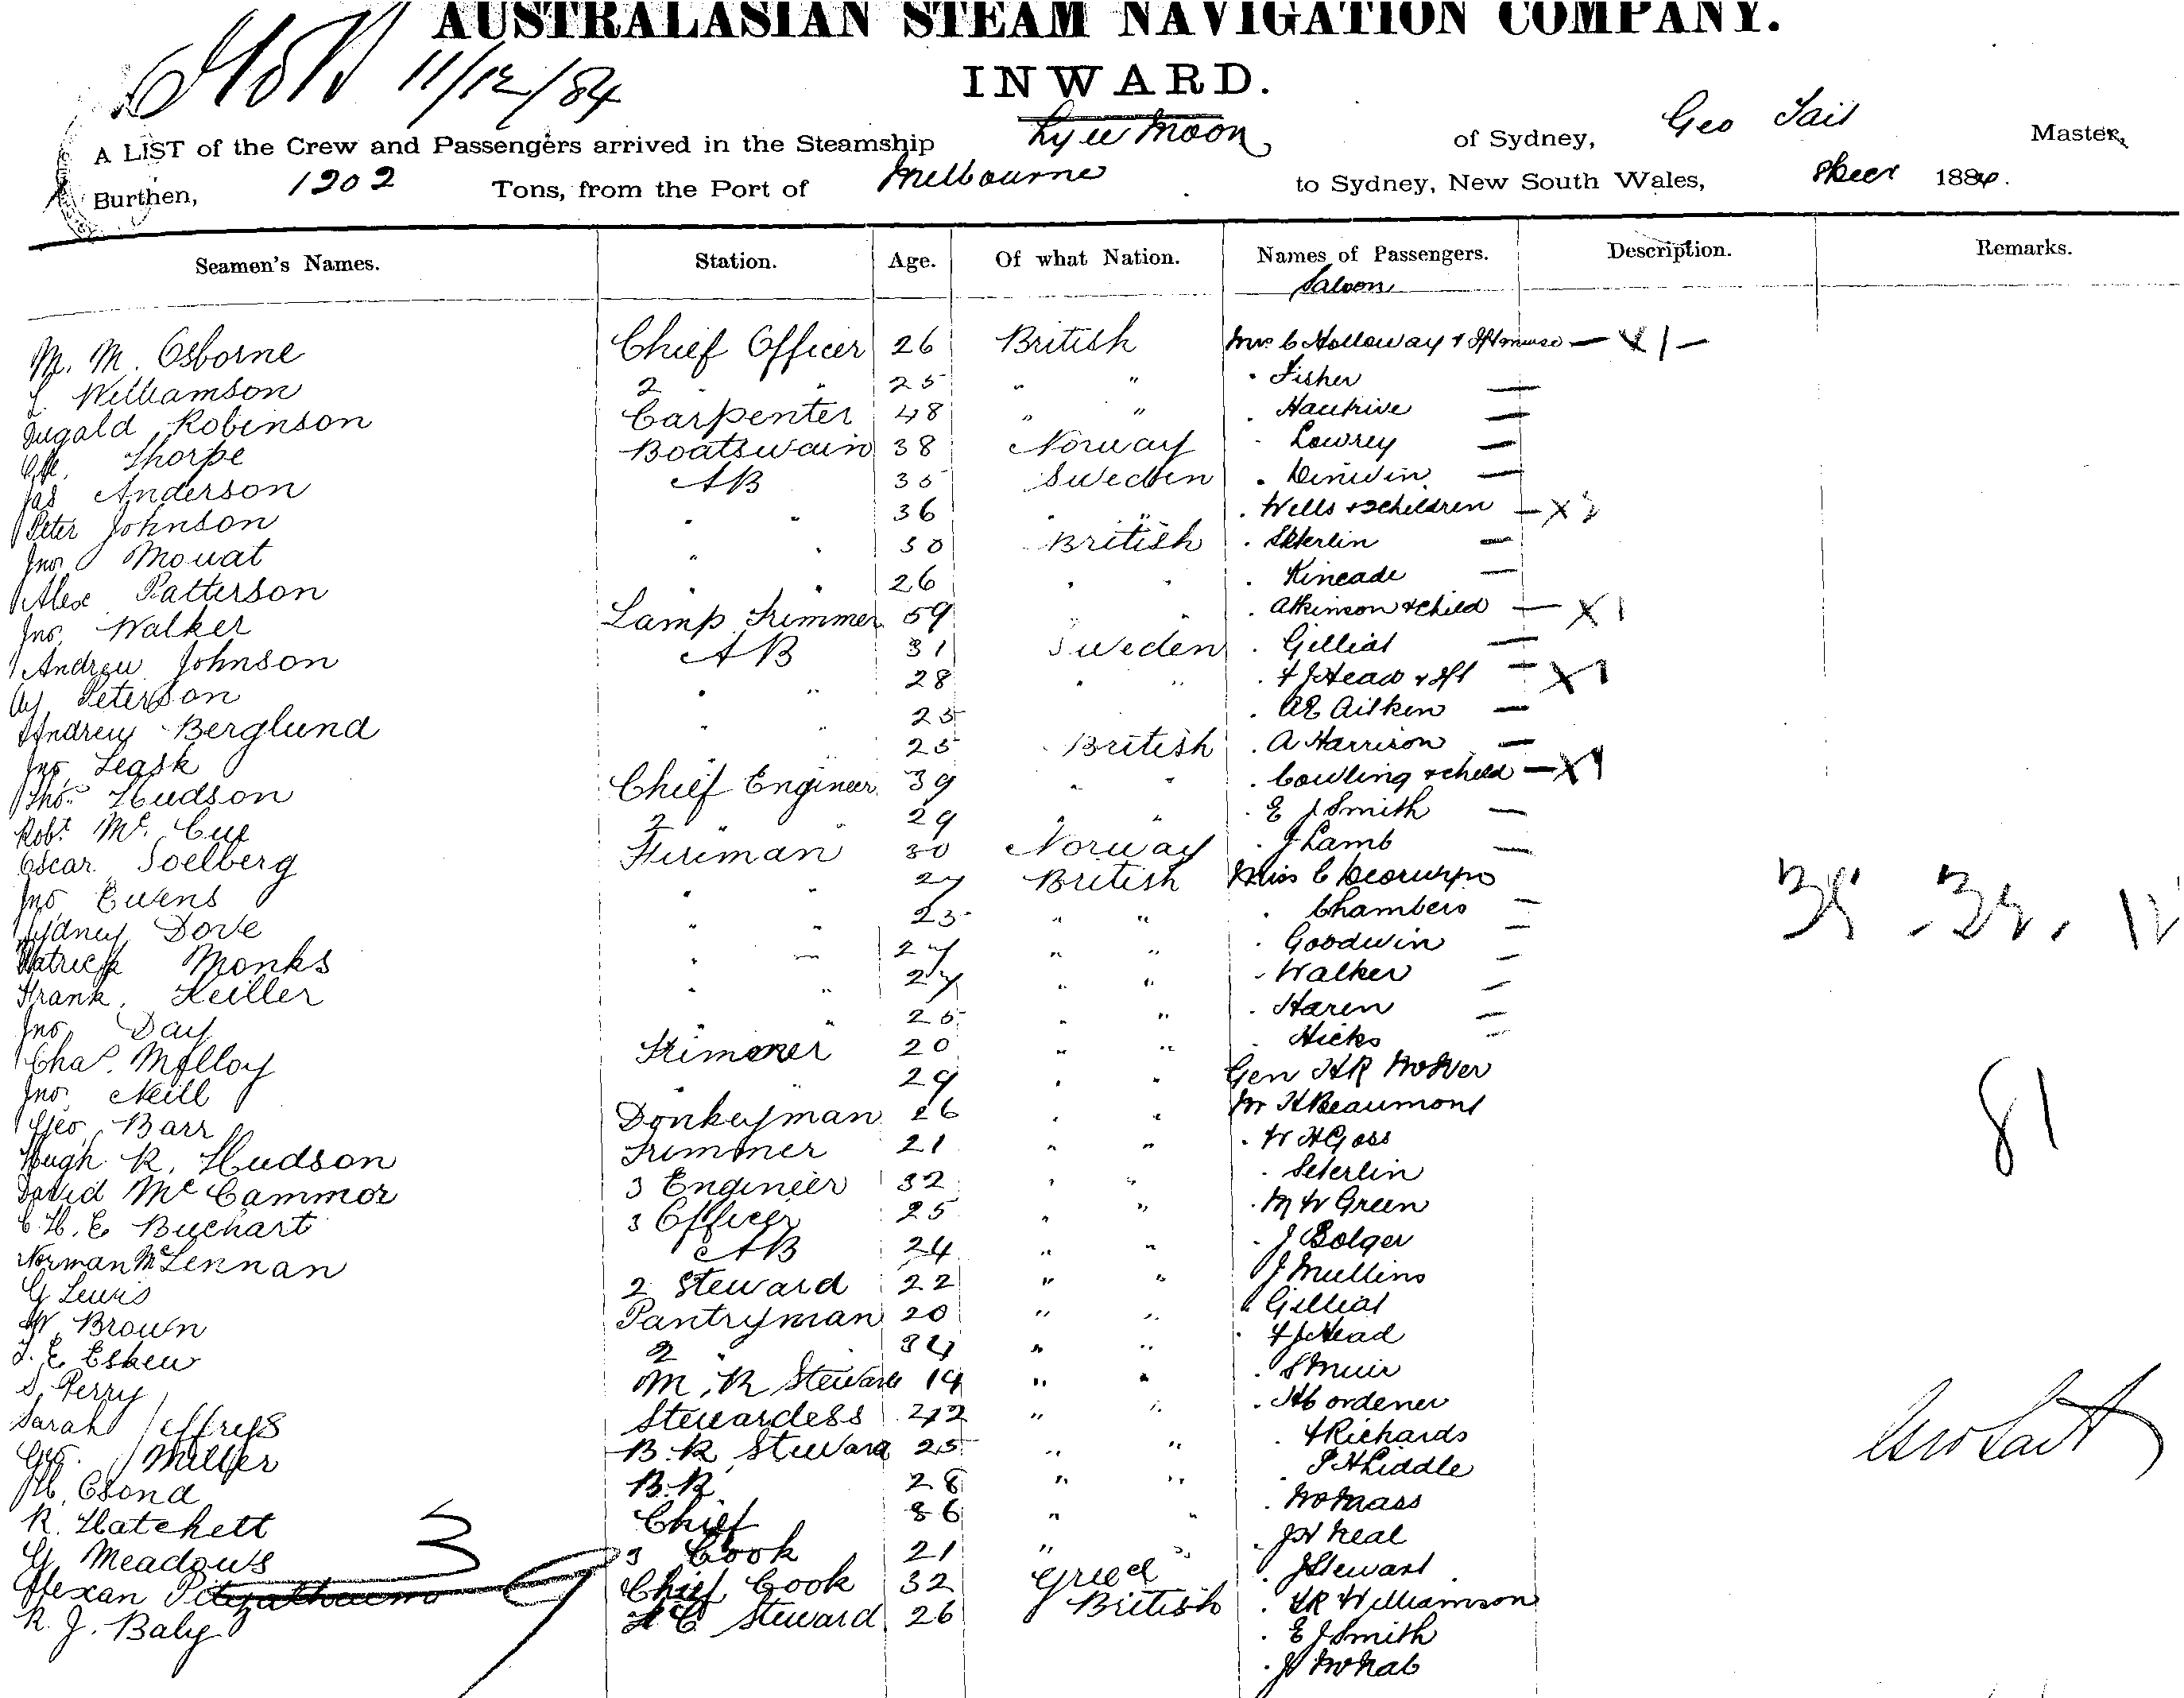 AUSTRALASIAN STEAM NAVIGATION COMPANY.
11/12/84
INWARD.
A LIST of the Crew and Passengers arrived in the Steamship Ly ee Moon of Sydney, Geo Tait Master,
Burthen, 1202 Tons, from the Port of Melbourne to Sydney, New South Wales, Decr 1884.
Seamen's Names. Station. Age. Of what Nation. Names of Passengers. Description. Remarks.
Saloon
M. M. Osborne Chief Officer 26 British Mrs C Holloway — X 1 —
L. Williamson 2 " 25 " " " Fisher —
Dugald Robinson Carpenter 48 " " " —
Thorpe Boatswain 38 Norway " Lowrey —
Jas Anderson AB 35 Sweden " —
Peter Johnson " " 36 " " " Wells + 2 children — X 2
Jno Mouat " " 30 British " —
Alex Patterson " " 26 " " " Kincade —
Jno Walker Lamp Trimmer 59 " " " Atkinson + child — X 1
Andrew Johnson AB 31 Sweden " —
Peterson " " 28 " " " F J Head — X 1
Andrew Berglund " " 25 " A E Aitken —
Jno Leask 25 British " A Harrison —
Thos Hudson Chief Engineer 39 " " " Cowling + child — X 1
Robt Mc Cue 2 " 29 " " " E J Smith —
Oscar Soelberg Fireman 30 Norway " J Lamb —
Jno Ewens " " 27 British Miss C
Sydney Dove " " 23 " " " Chambers —
Patrick Monks " " 27 " " " Goodwin —
Frank Keiller " " 27 " " " Walker —
Jno Day " " 25 " " " Haren —
Chas. Molloy Trimmer 20 " " " Hicks —
Jno Neill " " 29 " " Gen H R
Geo Barr Donkeyman 26 " " Mr H Beaumont
Hugh R. Hudson Trimmer 21 " " " W H Goss
David Mc Cammor 3 Engineer 32 " " "
C. H. E Buchart 3 Officer 25 " " " M W Green
Norman McLennan AB 24 " " " J Bolger
G Lewis 2 Steward 22 " " " J Mullins
W Brown Pantryman 20 " " "
J. E Eskew 2 " 34 " " " F J Head
S. Perry M. R Steward 19 " " " S Muir
Sarah Jeffreys Stewardess 42 " " "
Geo. Miller B. R Steward 25 " " " F Richards
B. R. 28 " " " P H Liddle
R. Hatchett Chief 36 " " "
G Meadows 3 Cook 21 " " " J H Neal
Alexan Chief Cook 32 Greece " J Stewart
R. J. Baly F. C. Steward 26 British " Williamson
" E J Smith
" J McNab
81
Geo Tait
3